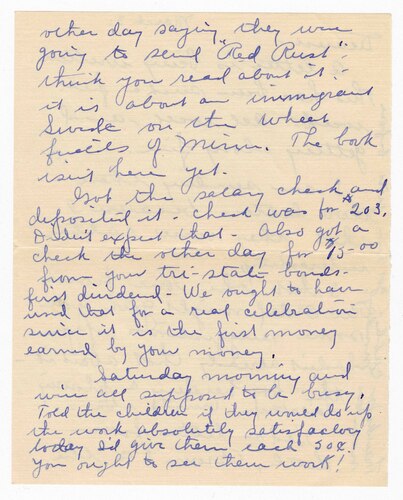 other day saying they were
going to send "Red Rust".
think you read about it:-
it is about an immigrant
Swede on the wheat
fields of Minn. The book
isn't here yet.
Got the salary check and
deposited it - check was for $203.
Didn't expect that - Also got a
check the other day for $15.00
from your tri-state bonds-
first dividend - We ought to have
used that for a real celebration
since it is the first money
earned by your money.
Saturday morning and
we're all supposed to be busy.
Told the children if they would do up
the work absolutely satisfactory
today I'd give them each 50¢!
You ought to see them work!